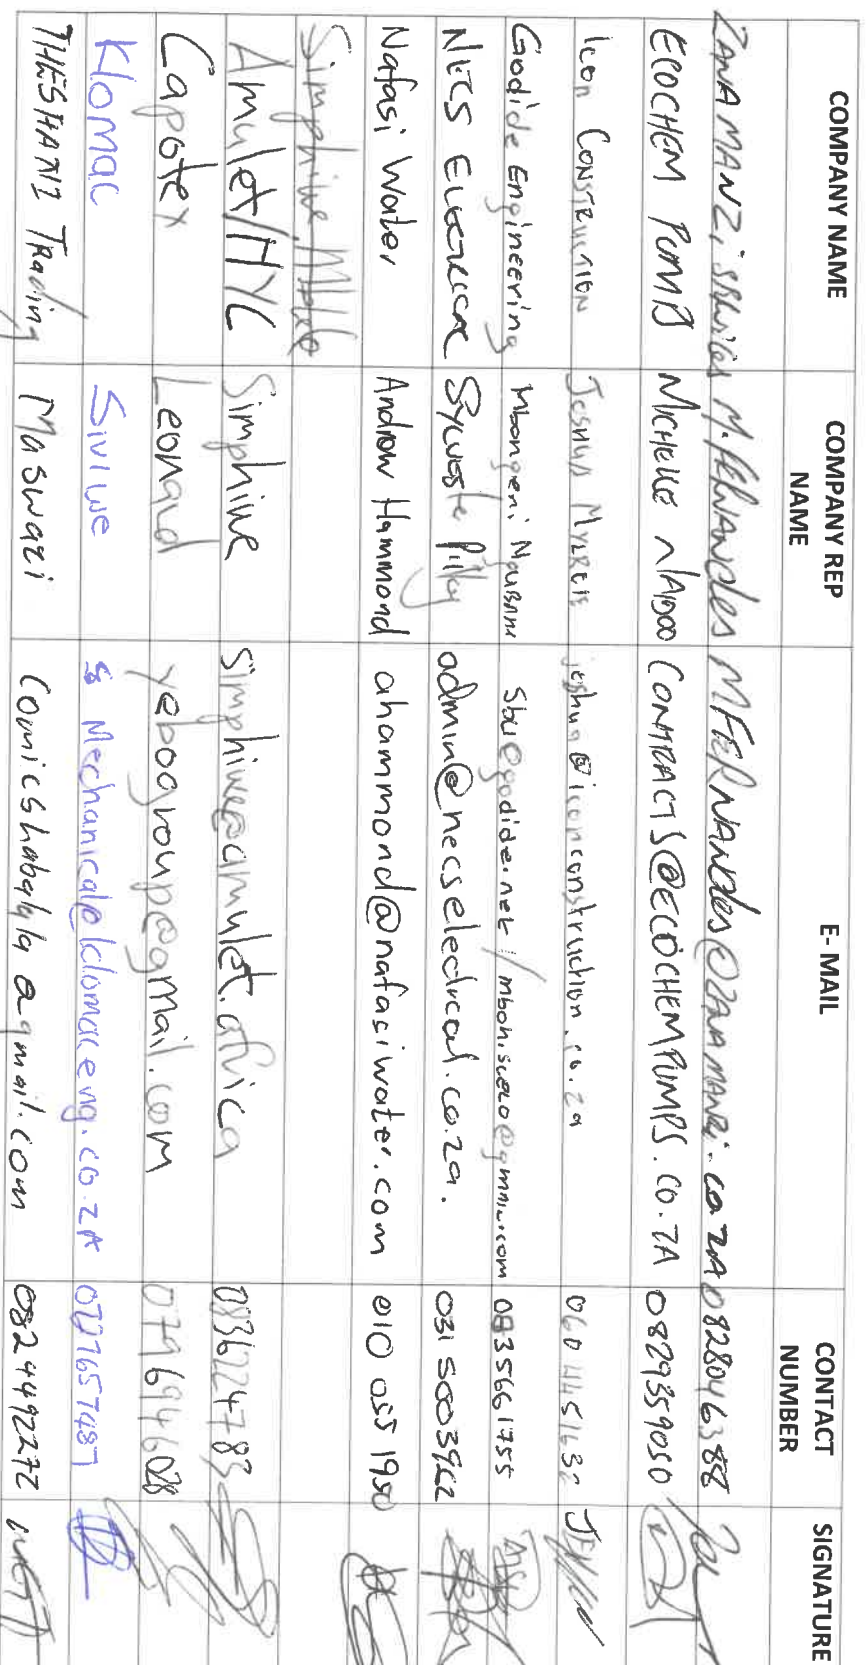 COMPANY NAME COMPANY REP NAME E- MAIL CONTACT NUMBER SIGNATURE
ZANAMANZI SERVICES M. FERNANDES MFERNANDES@ZANAMANZI.CO.ZA 0828046388
ECOCHEM PUMPS MICHELLE NAIDOO CONTRACTS@ECOCHEMPUMPS.CO.ZA 0829359050
Icon CONSTRUCTION JOSHUA joshua@iconconstruction.co.za
Godide Engineering Mbongeni NGUBANE Sbu@godide.net / 0835661755
NECS ELECTRICAL Sylveste Pillay admin@necselectrical.co.za. 031 5003962
Nafasi Water Andrew Hammond ahammond@nafasiwater.com 010 055 1950
Simphiwe
Amulet/HYC Simphiwe simphiwe@amulet.africa 0836224783
Capotex Leonard yeboogroup@gmail.com 0796946028
Klomac Siviwe Mechanical@klomaceng.co.zA 0727657487
THESHANI Trading Maswazi Comicshabalala@gmail.com 0824492272